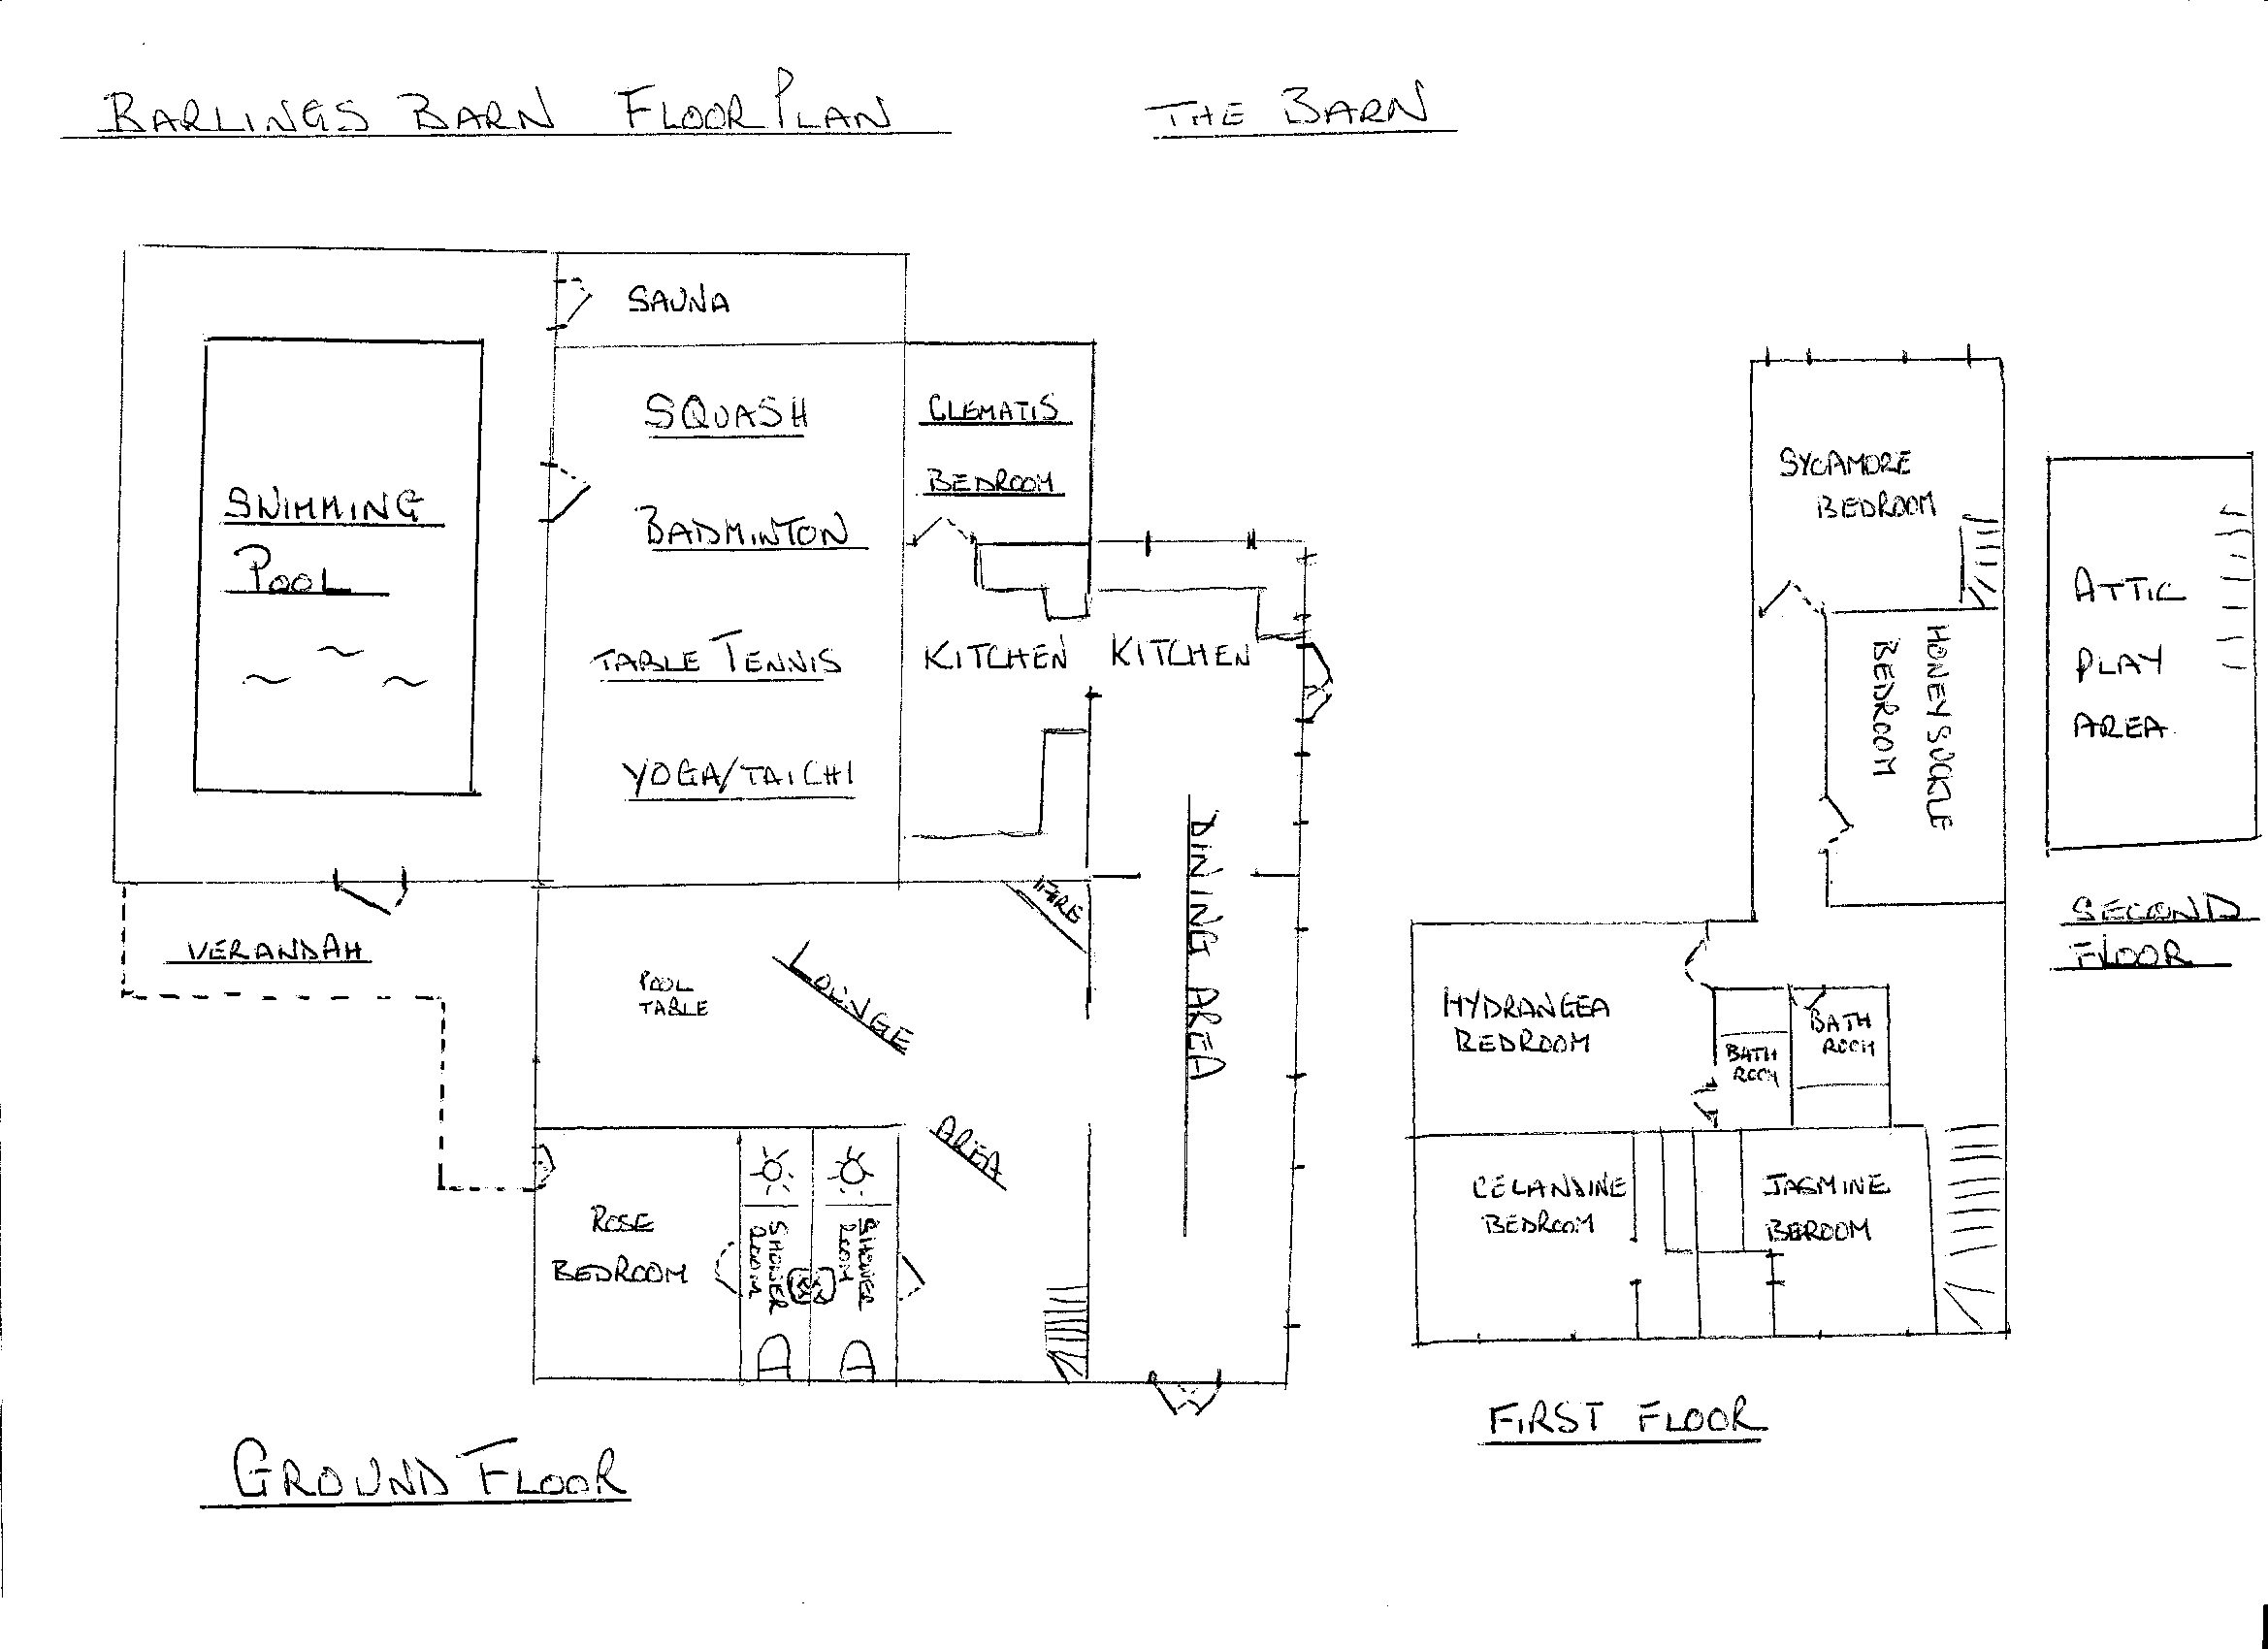 BARLINGS BARN FLOOR PLAN
THE BARN
SAUNA
SQUASH
BADMINTON
TABLE TENNIS
YOGA/TAICHI
SWIMMING
POOL
CLEMATIS
BEDROOM
KITCHEN
KITCHEN
DINING AREA
FIRE
VERANDAH
POOL
TABLE
LOUNGE
AREA
ROSE
BEDROOM
SHOWER
ROOM
SHOWER
ROOM
GROUND FLOOR
SYCAMORE
BEDROOM
HONEYSUCKLE
BEDROOM
HYDRANGEA
BEDROOM
BATH
ROOM
BATH
ROOM
CELANDINE
BEDROOM
JASMINE
BEROOM
FIRST FLOOR
ATTIC
PLAY
AREA.
SECOND
FLOOR